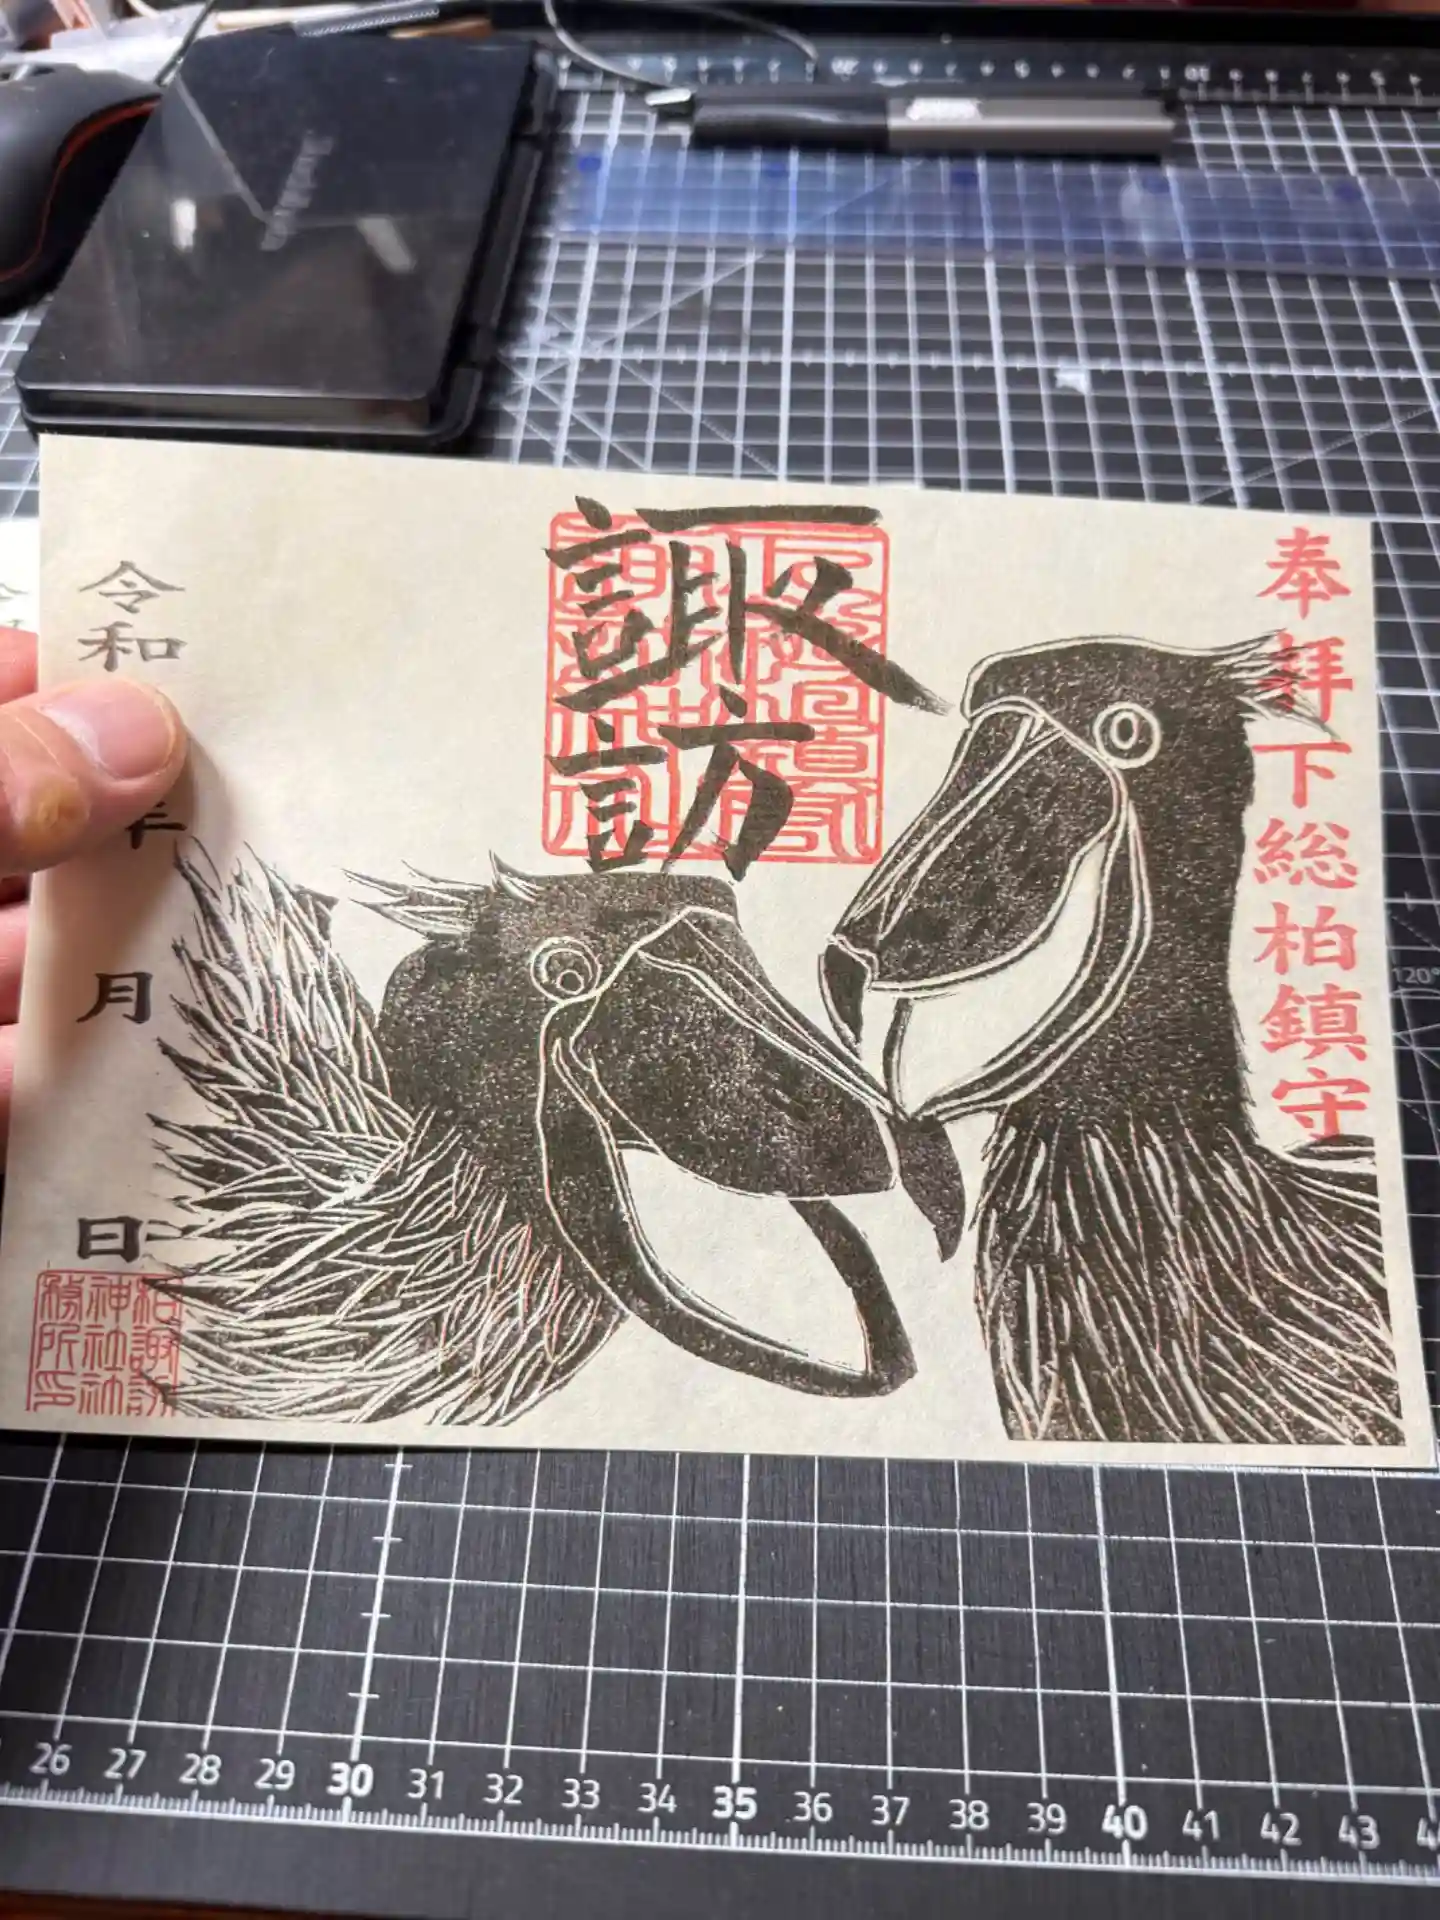 奉拝
下総柏鎮守
諏訪
令和
年
月
日
柏諏訪
神社社
務所印
26 27 28 29 30 31 32 33 34 35 36 37 38 39 40 41 42 43
120°